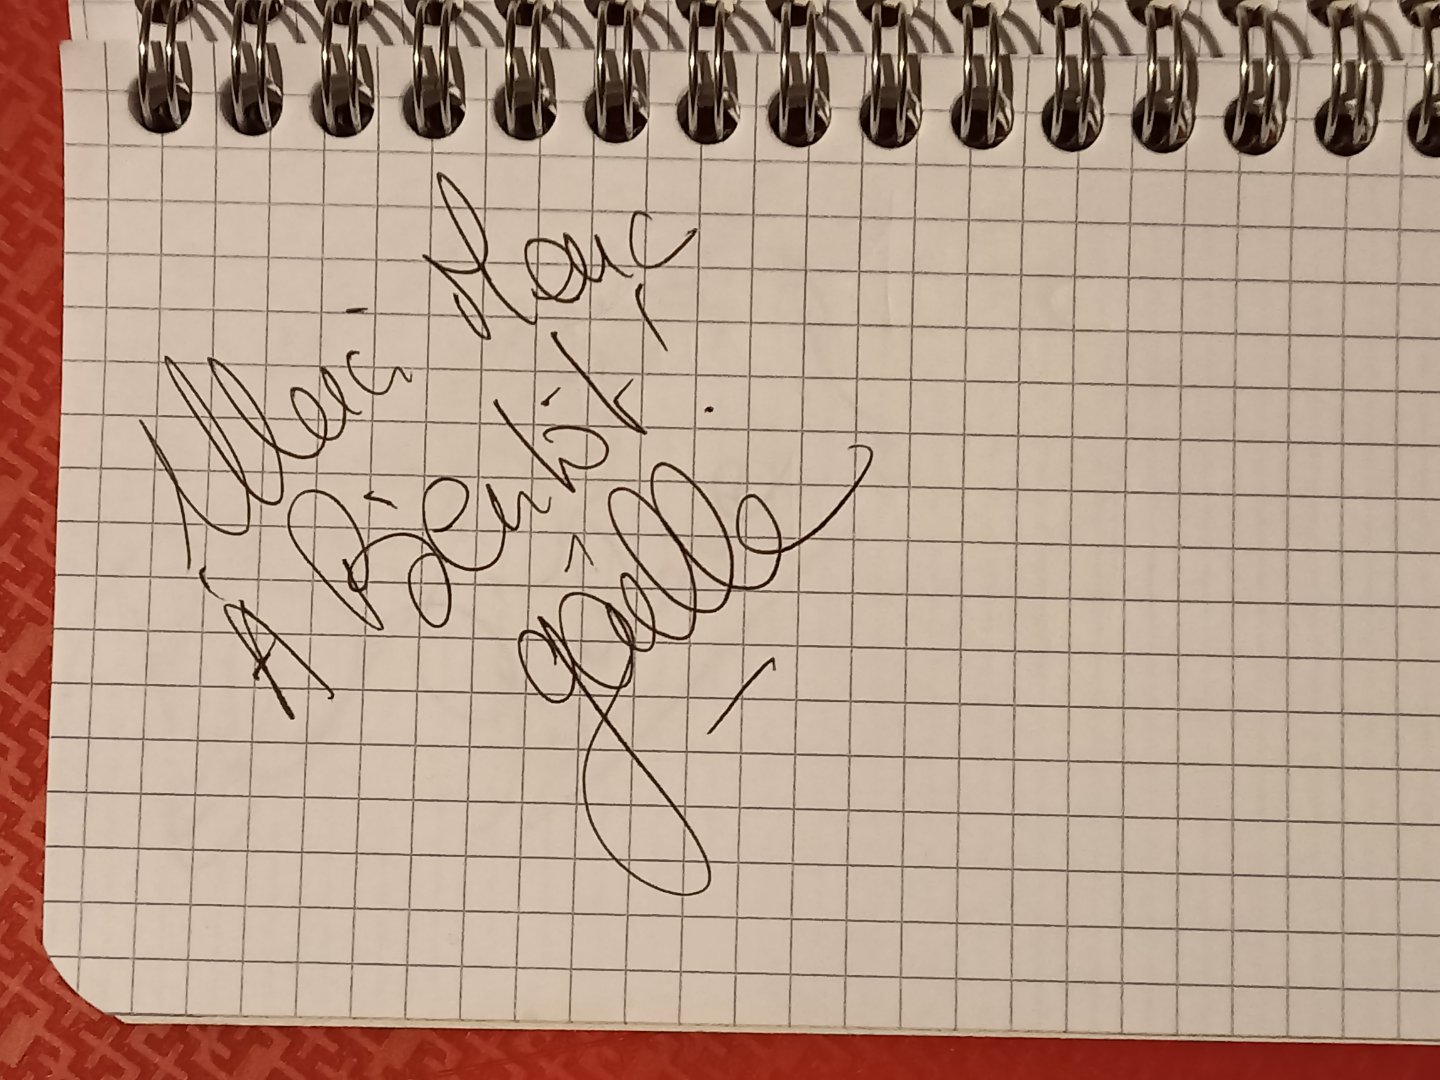 Merci Marc
À Bientôt !
gaëlle